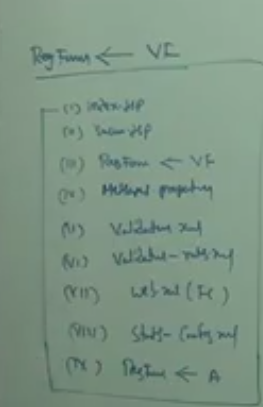 RegForm ← VF
(i) index.JSP
(ii) Succ.JSP
(iii) RegForm ← VF
(iv) properties
(v) Validator xml
(vi) Validator-rules.xml
(vii) web.xml (Tc)
(viii) Struts-Config.xml
(ix) RegForm ← A